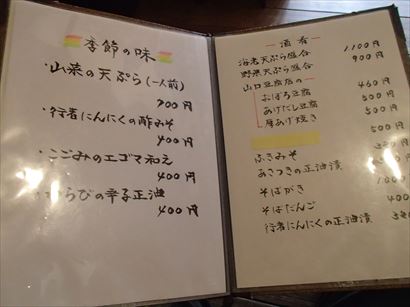 季節の味
・山菜の天ぷら(一人前)
700円
・行者にんにくの酢みそ
400円
・こごみのエゴマ和え
400円
・わらびの辛子正油
400円
酒肴
海老天ぷら盛合 1,100円
野菜天ぷら盛合 900円
山口豆腐店の
おぼろ豆腐 460円
あげだし豆腐 500円
厚あげ焼き 500円
500円
ふきみそ
あさつきの正油漬
そばがき
そばだんご 400円
行者にんにくの正油漬